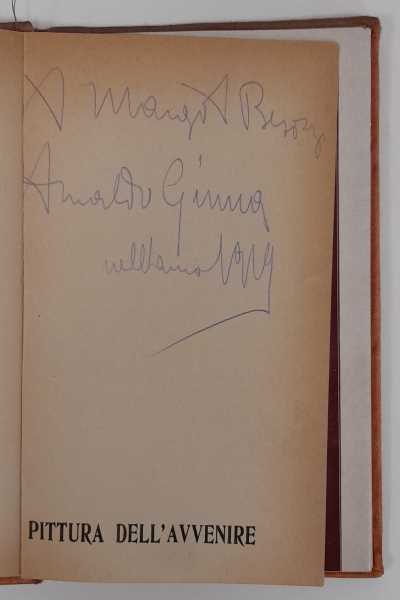 A Margot Besozzi
Arnaldo Ginna
nell'anno 1919
PITTURA DELL'AVVENIRE